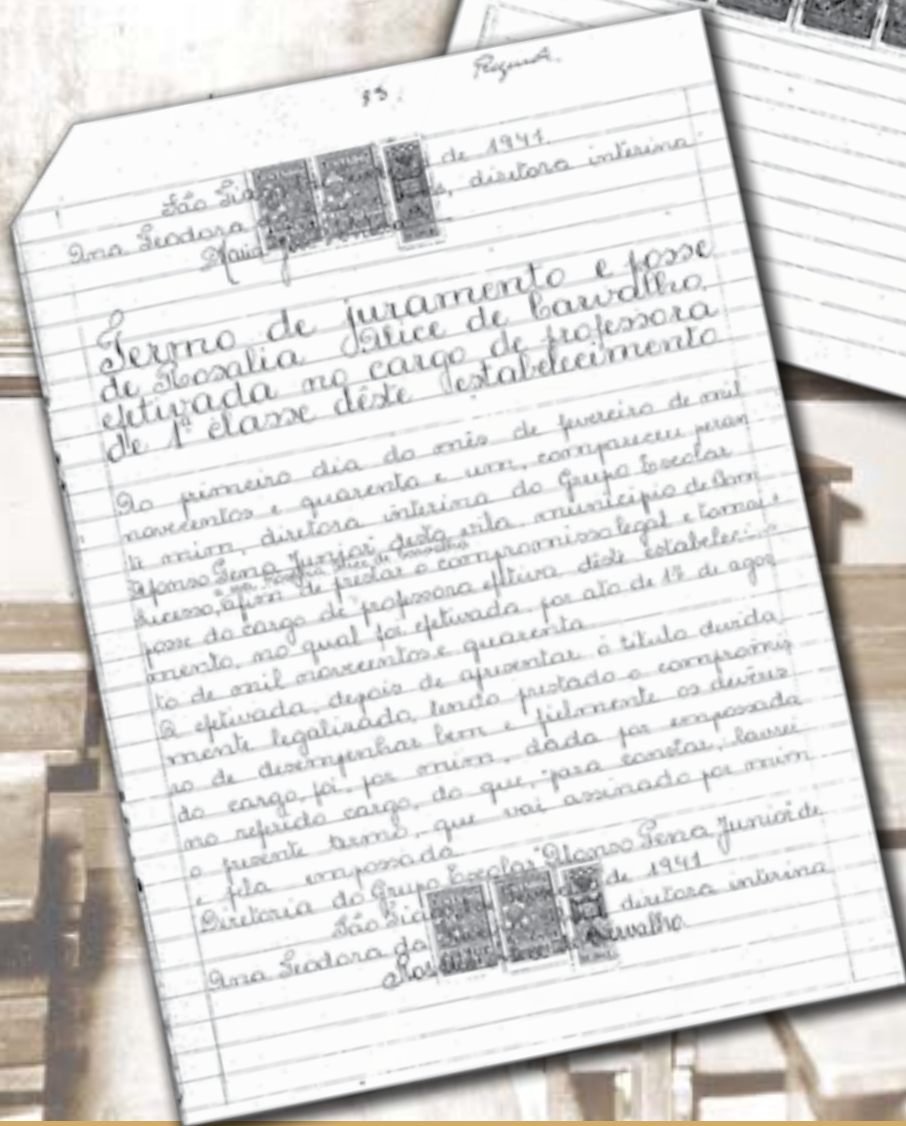 São de 1941.
Ana Teodora diretora interina
Maria
Termo de juramento e posse
de Rosalia Alice de Carvalho,
efetivada no cargo de professora
de 1ª classe dêste estabelecimento
Ao primeiro dia do mês de fevereiro de mil
novecentos e quarenta e um, compareceu peran
te mim, diretora interina do Grupo Escolar
Afonso Pena Junior desta vila, município de Bom
Sucesso, afim de prestar o compromisso legal e tomar
posse do cargo de professora efetiva dêste estabeleci
mento, no qual foi efetivada, por ato de 17 de agos
to de mil novecentos e quarenta.
A efetivada, depois de apresentar o título devida
mente legalizado, tendo prestado o compromis
so de desempenhar bem e fielmente os devêres
do cargo, foi, por mim, dada por empossada
no referido cargo, do que, para constar, lavrei
o presente termo, que vai assinado por mim
e pela empossada.
Diretoria do Grupo Escolar "Afonso Pena Junior" de
São de 1941
Ana Teodora da diretora interina
Carvalho